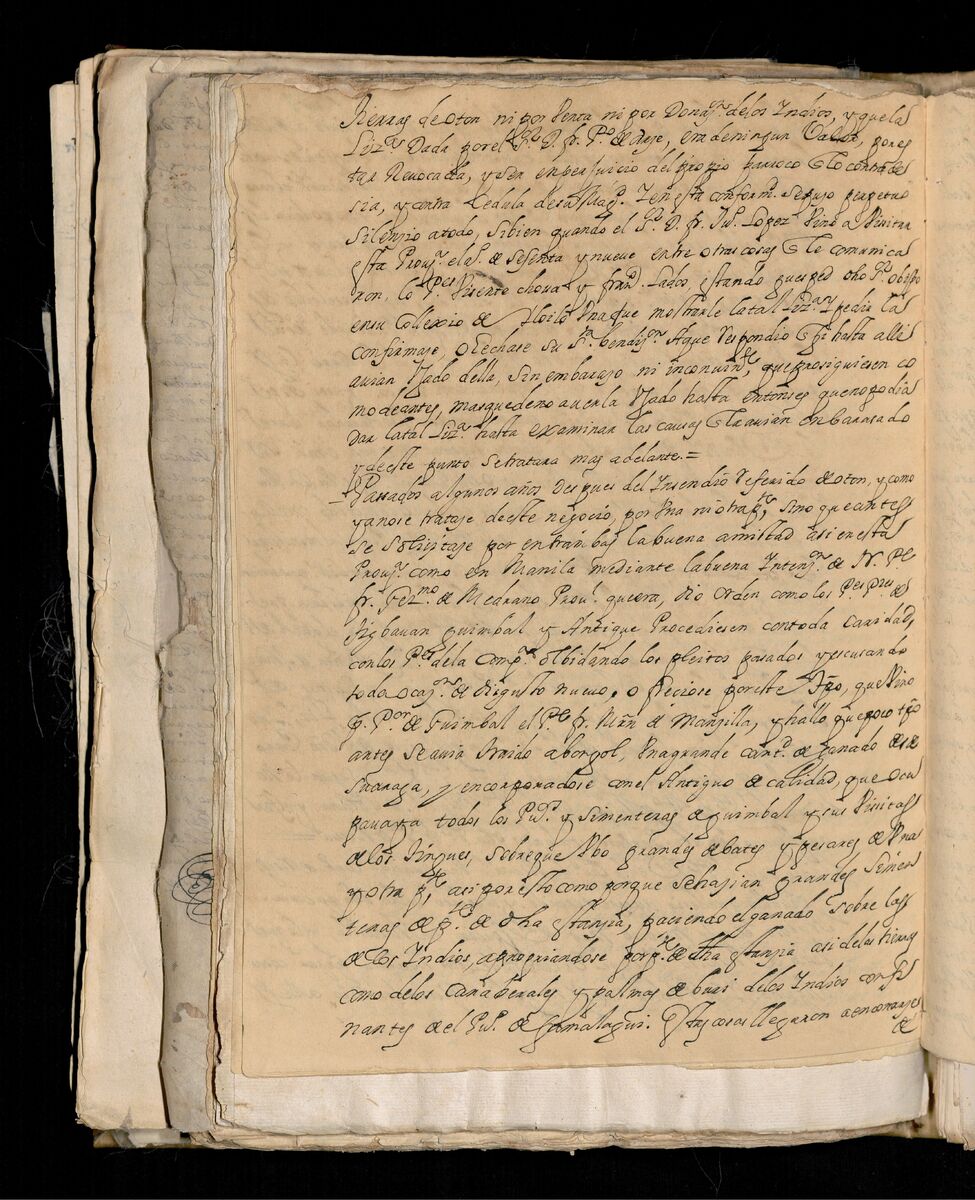 tierras de oton ni por Venta ni por Donaçⁿ. delos Indios, y que la
Lizª. Dada por el Sʳ. D. fr. Pº. de Arze, era de ningun Valor, por es
tar Revocada, y ser en perjuicio del propio parroco
sia, y contra Cedula de su Magᵈ. Y en esta conformᵈ. se puso perpetuo
Silenzio a todo, si bien quando el Sʳ. D. fr. Juº. Lopez Vino a Visitar
esta Provª. el aº. de sesenta y nueve entre otras cosas q̃ le comunica
ron, los Pᵉˢ. Visente chova y franᶜᵒ. Lados, estando guesped dho Sʳ. Obispo
en su Collexio de Iloilo Una que mostrarle la tal Lizª. y pedir la
confirmase, o lechase su Sᵗᵃ. bendizⁿ. A que Respondio q̃ si hasta alli
avian Usado della, sin embarazo ni inconvinᵗᵉ, que prosiguiesen co
mo de antes, mas que de no averla Usado hasta entonses que no podia
Dar la tal Lizª. hasta examinar las causas q̃ lo avian enbarasado
y de este punto se tratara mas adelante.=
Passados algunos años Des pues del Insendio Referido de oton, y como
ya no se trataje de este negocio, por Una ni otra pᵗᵉ, sino que antes
se solisitaje por entrambas la buena amistad asi en esta
Provª. como en Manila mediante la buena Intenzⁿ. de N. Pᵉ
fr. Gerᵐᵒ. de Medrano Provˡ. que era, dio orden como los Pᵉˢ. Pʳᵉˢ. de
Tigbavan guimbal y Antique Procediesen con toda caridad,
con los Pᵉˢ. de la Compª. olbidando los pleitos pasados y escusando
toda ocazⁿ. de disgusto nuevo. ofreciose por este tpo, que Vino
Pᵒʳ. de Guimbal el Pᵉ. fr. Min de Mansilla, y hallo que poco tpõ
antes se avia traido a borgol, Una grande cantᵈ. de ganado de
Suaraga, y encorporadose con el Antiguo de calidad, que ocu
pava ya todos los Puºˢ. y Simenteras de guimbal y sus Visitas
de los Jingues, sobre que Ubo grandes debates y pesares de Una
y otra pᵗᵉ, asi por esto como porque se hasian grandes Semen
teras de pᵗᵉ. de dha estansia, paciendo el ganado sobre las
de los Indios, apropriandose por pᵗᵉ. de dha estansia asi de las tierras
como de los cañaberales y palmas de buri de los Indios confi
nantes de el Puº. de Estas cosas llegaron a enconarse
de